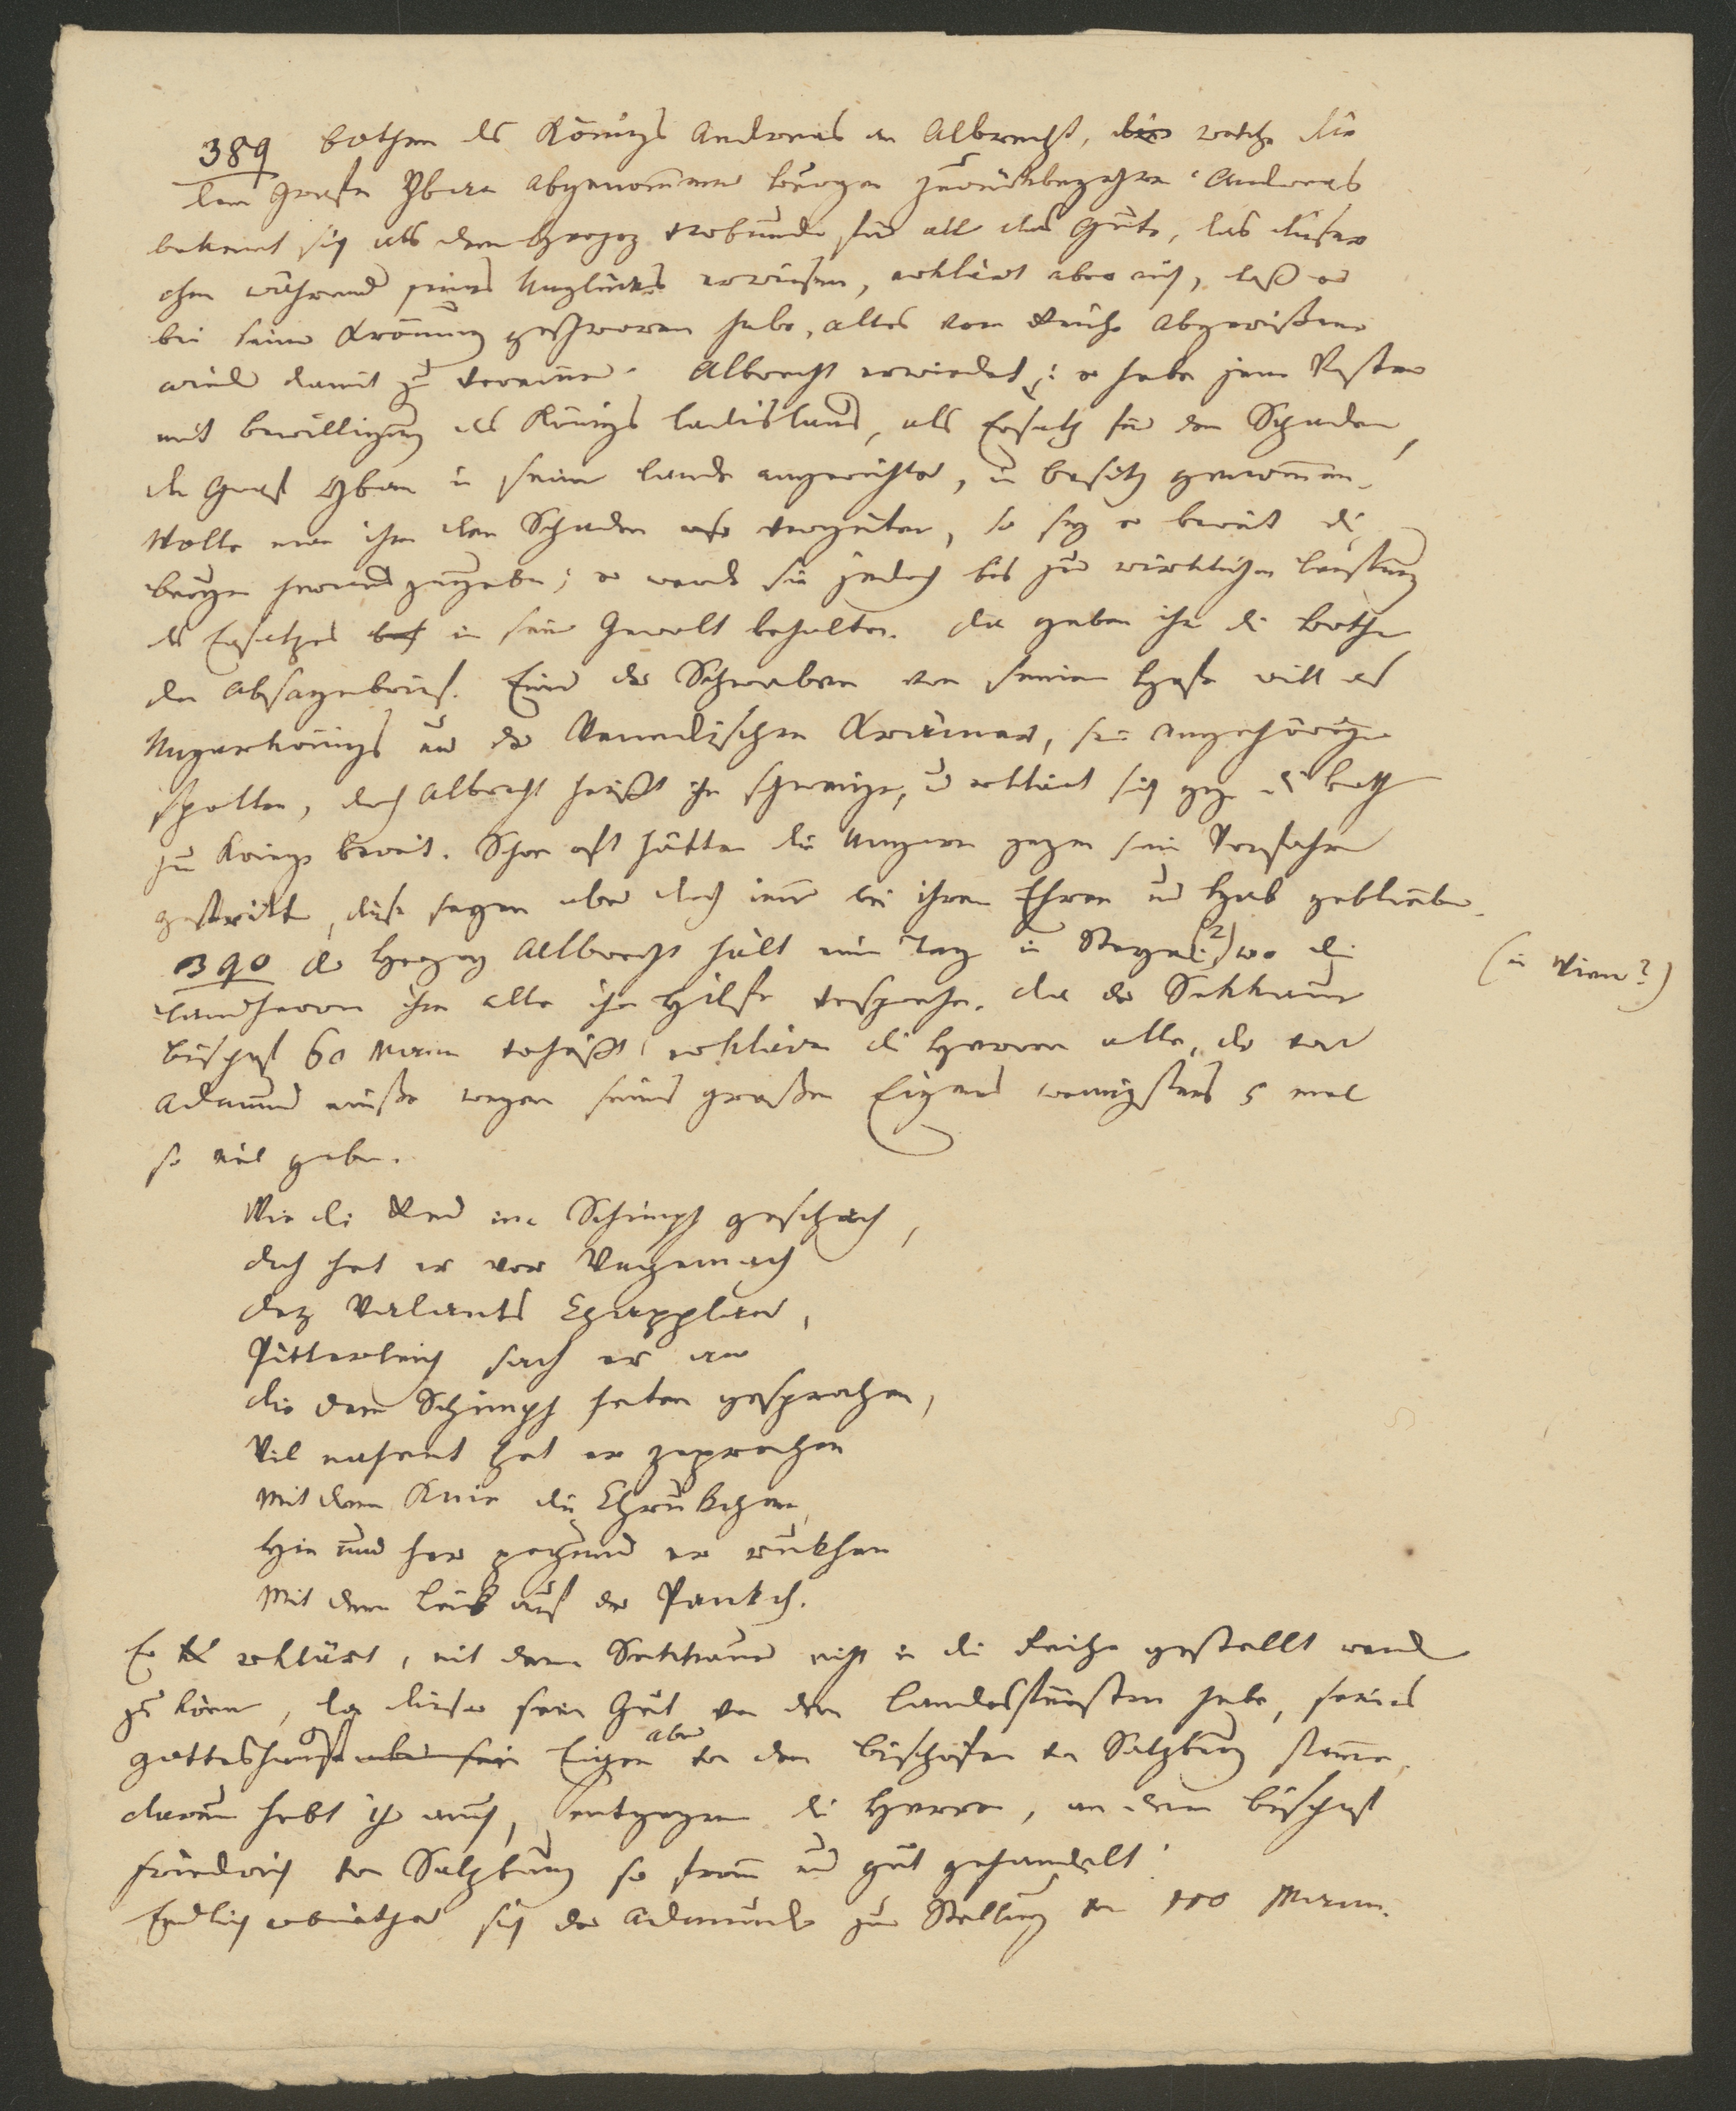 389 Bothen des Königs Andreas an Albrecht, die welche die
dem Grafen Yban abgenommenen Burgen zurückbegehren. Andreas
bekennt sich als dem Herzog verbunden für all das Gute, das dieser
ihm während seines Unglückes erwiesen, erklärt aber auch, daß er
bei seiner Krönung geschworen habe, alles vom Reiche Abgerißene
wieder damit zu vereinen. Albrecht erwiedert: er habe jene Vesten
mit Bewilligung des Königs Ladislaus, als Ersatz für den Schaden,
den Graf Yban in seinem Lande angerichtet, in Besitz genommen.
Wolle man ihm den Schaden vergüten, so sey er bereit die
Burgen herauszugeben; er werde sie jedoch bis zur wirklichen Leistung
des Ersatzes in seiner Gewalt behalten. Da geben ihm die Bothen
den Absagebrief. Einer der Schwaben von seinem Hofe will des
Ungarkönigs und der Venedischen Krämer, seiner Angehörigen
spotten, doch Albrecht heißt ihn schweigen, und erklärt sich gegen die Bothen
zu Kriege bereit. Schon oft hätten die Ungern gegen seine Vorfahren
gestritten, diese seyen aber doch immer bei ihren Ehren und Hab geblieben.
390 Der Herzog Albrecht hält einen Tag in (?) wo die
(in Wien?)
Landherrn ihm alle ihre Hilfe versprechen. Da der Sekkauer
Bischof 60 Mann verheißt, erklären die Herren alle, der von
Admund müße wegen seines großen Eigens wenigstens 5 mal
so viel geben.
Wie di Red in Schimph geschach,
doch het er vor Ungemach
dez Valants Chapplan,
Pitterleich sach er an
die dem Schimph heten gesprochen,
Vil nahent het er zeprochen
Mit dem Knie die Chrukchen,
Hin und her pegund er rukhen
Mit dem Leib auf der Pankch.
Er erklärt, mit dem Sekkauer nicht in die Reihe gestellt werden
zu können, da dieser sein Gut von dem Landesfürsten habe, seines
Gotteshauses aber sein Eigen aber von den Bischöfen von Salzburg stamme.
Darum habt ihr auch, entgegnen die Herren, an dem Bischof
Friedrich von Salzburg so fromm und gut gehandelt!
Endlich erbiethet sich der Admunder zur Stellung von 100 Mann.